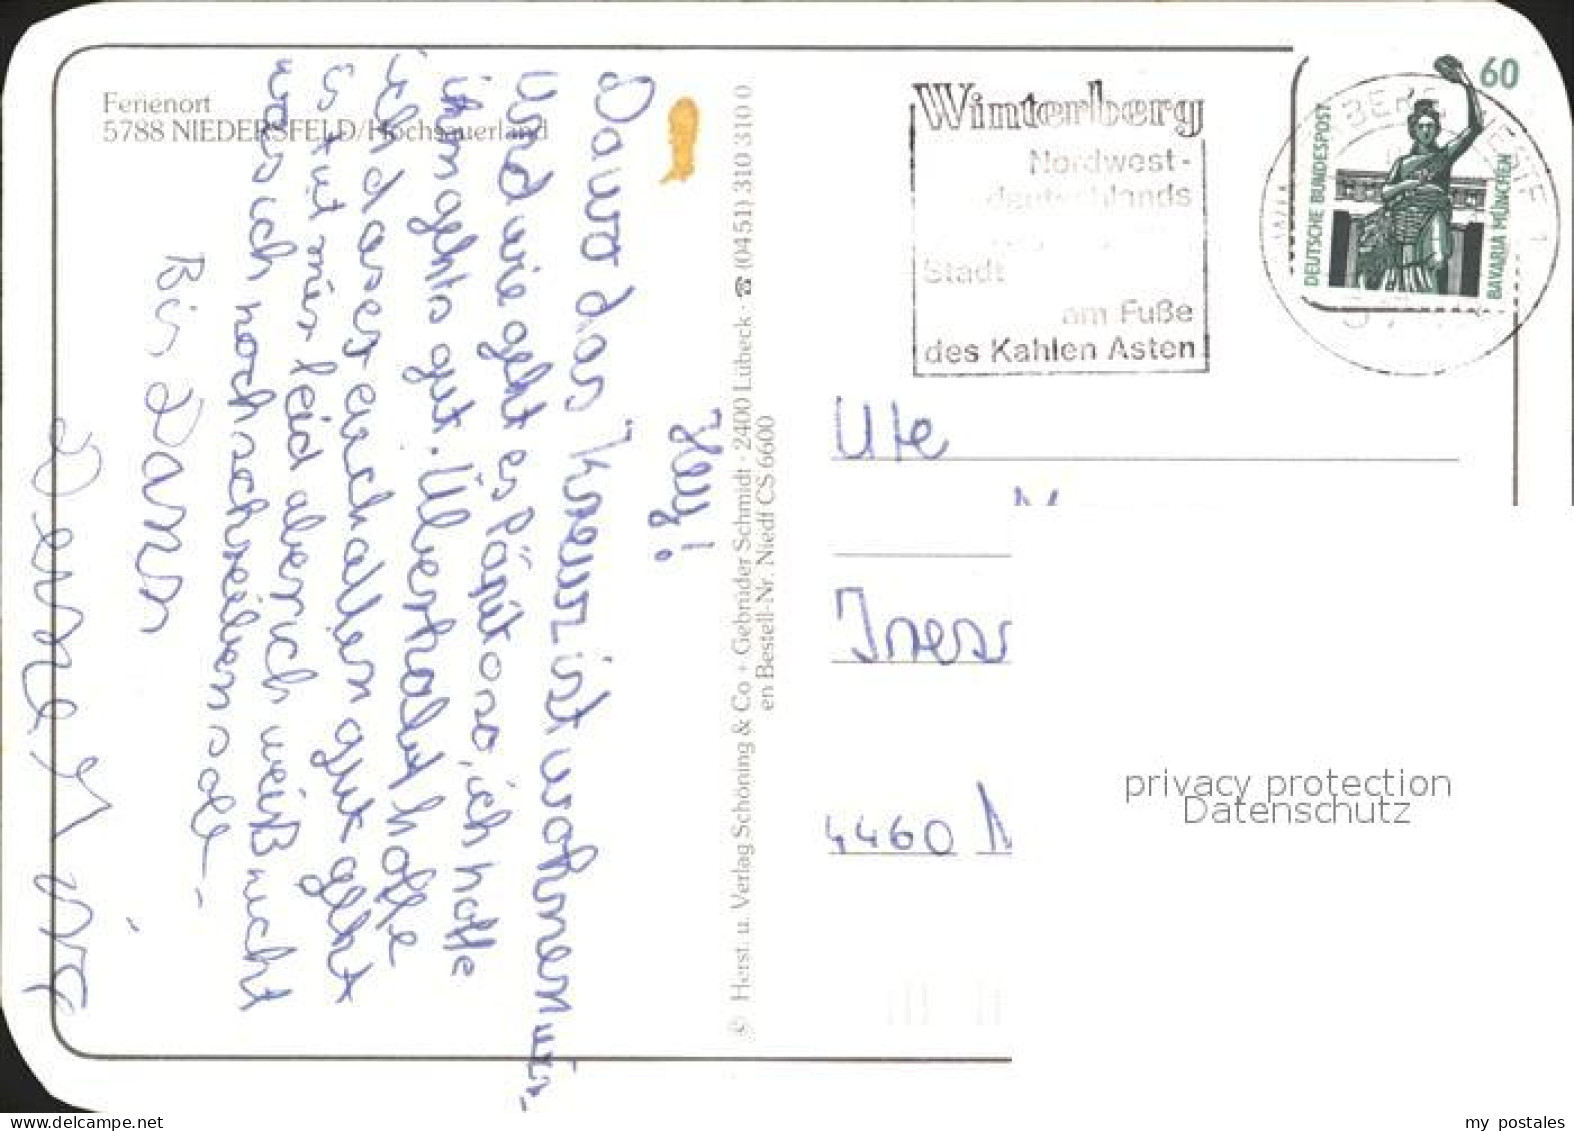 Ferienort
5788 NIEDERSFELD/Hochsauerland
Hey!
Da wo das "Kreuz" ist wohnen wir.
Und wie geht es Päpit oso, ich hoffe
ihm gehts gut. Überhaupt hoffe
ich das es euch allen gut geht
Es tut mir leid aber ich weiß nicht
was ich noch schreiben soll
Bis Dann
© Herst. u. Verlag Schöning & Co + Gebrüder Schmidt · 2400 Lübeck · ☎ (0451) 310 310 0
en Bestell-Nr. Niedf CS 6600
Winterberg
Nordwest-
deutschlands
Stadt
am Fuße
des Kahlen Asten
60
DEUTSCHE BUNDESPOST
BAVARIA MÜNCHEN
Ute
4460
privacy protection
Datenschutz
my postales